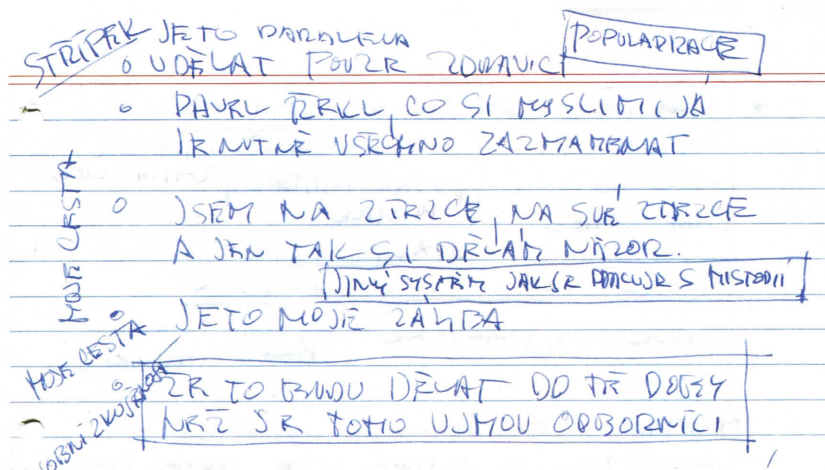 STŘÍPEK JE TO PARALELA
POPULARIZACE
o UDĚLAT POUZE
- o PAVEL ŘEKL, CO SI MYSLÍM I JÁ
JE NUTNÉ VŠECHNO ZAZNAMENAT
MOJE CESTA
o JSEM NA STEZCE, NA SVÉ STEZCE
A JEN TAK SI DĚLÁM NÁZOR.
JINÝ SYSTÉM JAK SE PRACUJE S HISTORIÍ
o JE TO MOJE
MOJE CESTA
o ŽE TO BUDU DĚLAT DO TÉ DOBY
- NEŽ SE TOHO UJMOU ODBORNÍCI